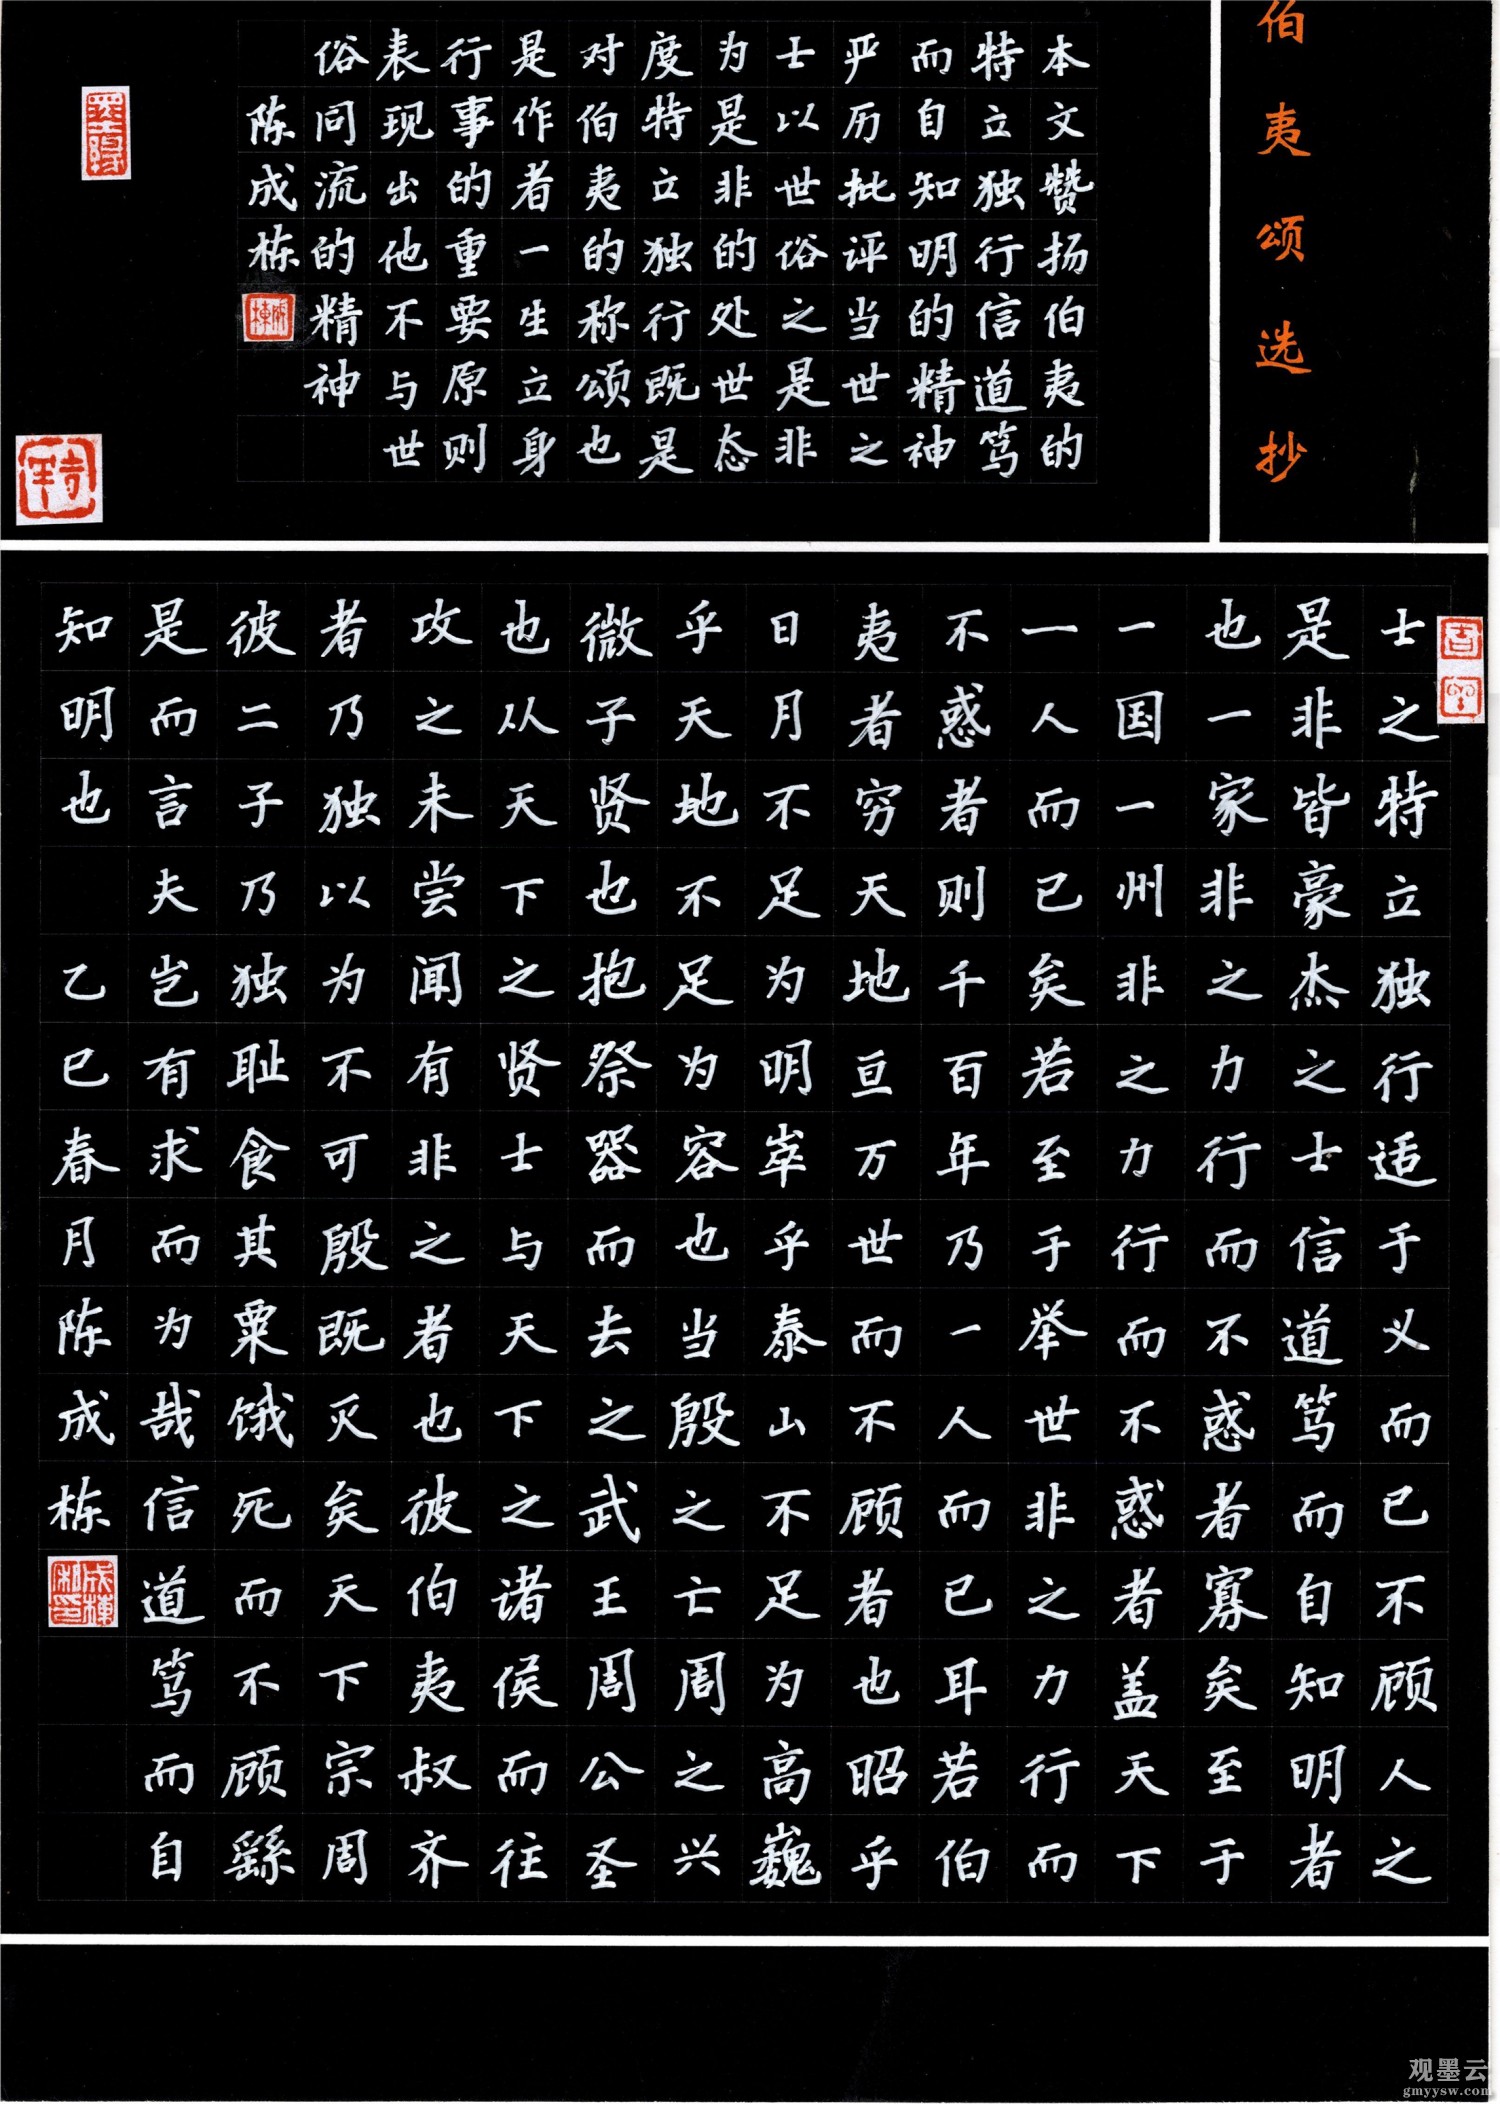 伯夷颂选抄
本文赞扬伯夷的
特立独行信道笃
而自知明的精神
严历批评当世之
士以世俗之是非
为是非的处世态
度特立独行既是
对伯夷的称颂也
是作者一生立身
行事的重要原则
表现出他不与世
俗同流的精神
陈成栋
士之特立独行适于义而已不顾人之
是非皆豪杰之士信道笃而自知明者
也一家非之力行而不惑者寡矣至于
一国一州非之力行而不惑者盖天下
一人而已矣若至于举世非之力行而
不惑者则千百年乃一人而已耳若伯
夷者穷天地亘万世而不顾者也昭乎
日月不足为明崒乎泰山不足为高巍
乎天地不足为容也当殷之亡周之兴
微子贤也抱祭器而去之武王周公圣
也从天下之贤士与天下之诸侯而往
攻之未尝闻有非之者也彼伯夷叔齐
者乃独以为不可殷既灭矣天下宗周
彼二子乃独耻食其粟饿死而不顾繇
是而言夫岂有求而为哉信道笃而自
知明也 乙巳春月陈成栋
成棟私印
观墨云
gmyysw.com